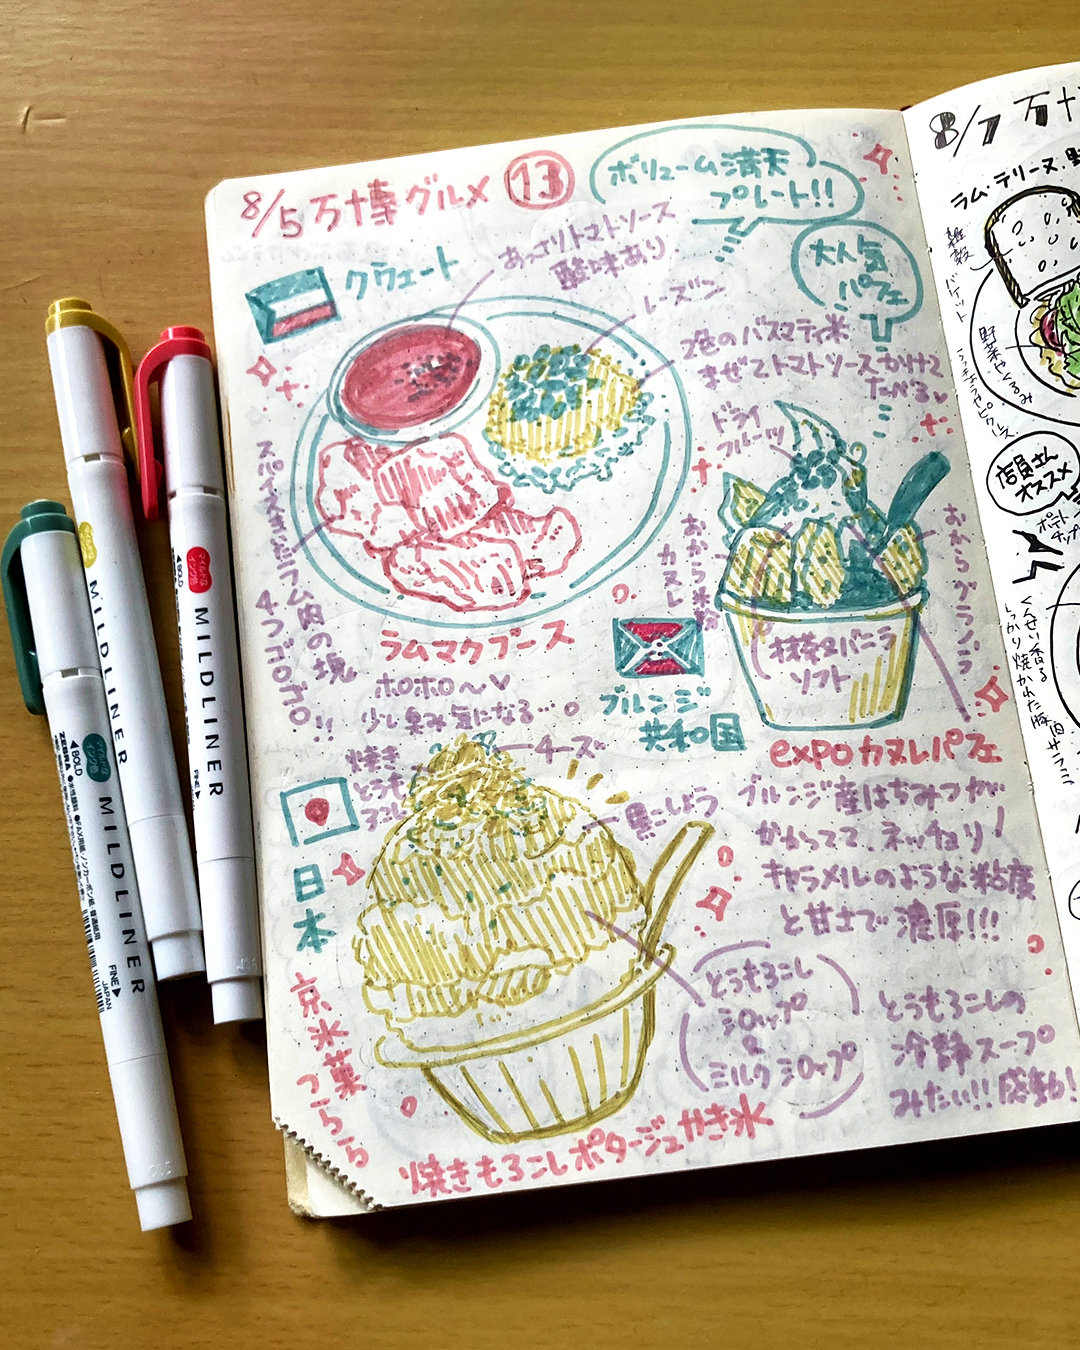 8/5 万博グルメ ⑬
ボリューム満天
プレート!!
クウェート
あっさりトマトソース
酸味あり
レーズン
大人気
パフェ
2色のバスマティ米
まぜてトマトソースかけて
たべる♡
スパイスまとったラム肉の塊
4つゴロゴロ!!
ラムマクブース
ホロホロ〜♡
少し臭み気になる…。
ドライ
フルーツ
おから米粉
カヌレ
おからグラノーラ
抹茶&バニラ
ソフト
ブルンジ
共和国
expoカヌレパフェ
ブルンジ産はちみつが
かかってて、ネッチョリ!
キャラメルのような粘度
と甘土で濃厚!!!
日本
京氷菓つらら
焼き
とうも
ろこし
チーズ
黒こしょう
とうもろこし
シロップ
&
ミルクシロップ
とうもろこしの
冷静スープ
みたい!!感動!
焼きもろこしポタージュやき氷
8/7 万博
ラム・テリーヌ、野
雑穀
バゲット
野菜やくるみ
ピクルス
店員さん
オススメ
ポテト
チップ
くんせい香る
しっかり焼かれた豚肉サラミ
MILDLINER
マイルドな
インク色
◀BOLD
MILDLINER
FINE▶
マイルドな
インク色
◀BOLD
ZEBRA ●水性顔料 ●FAX用紙・ノンカーボン紙・普通紙用
MILDLINER
FINE▶
JAPAN